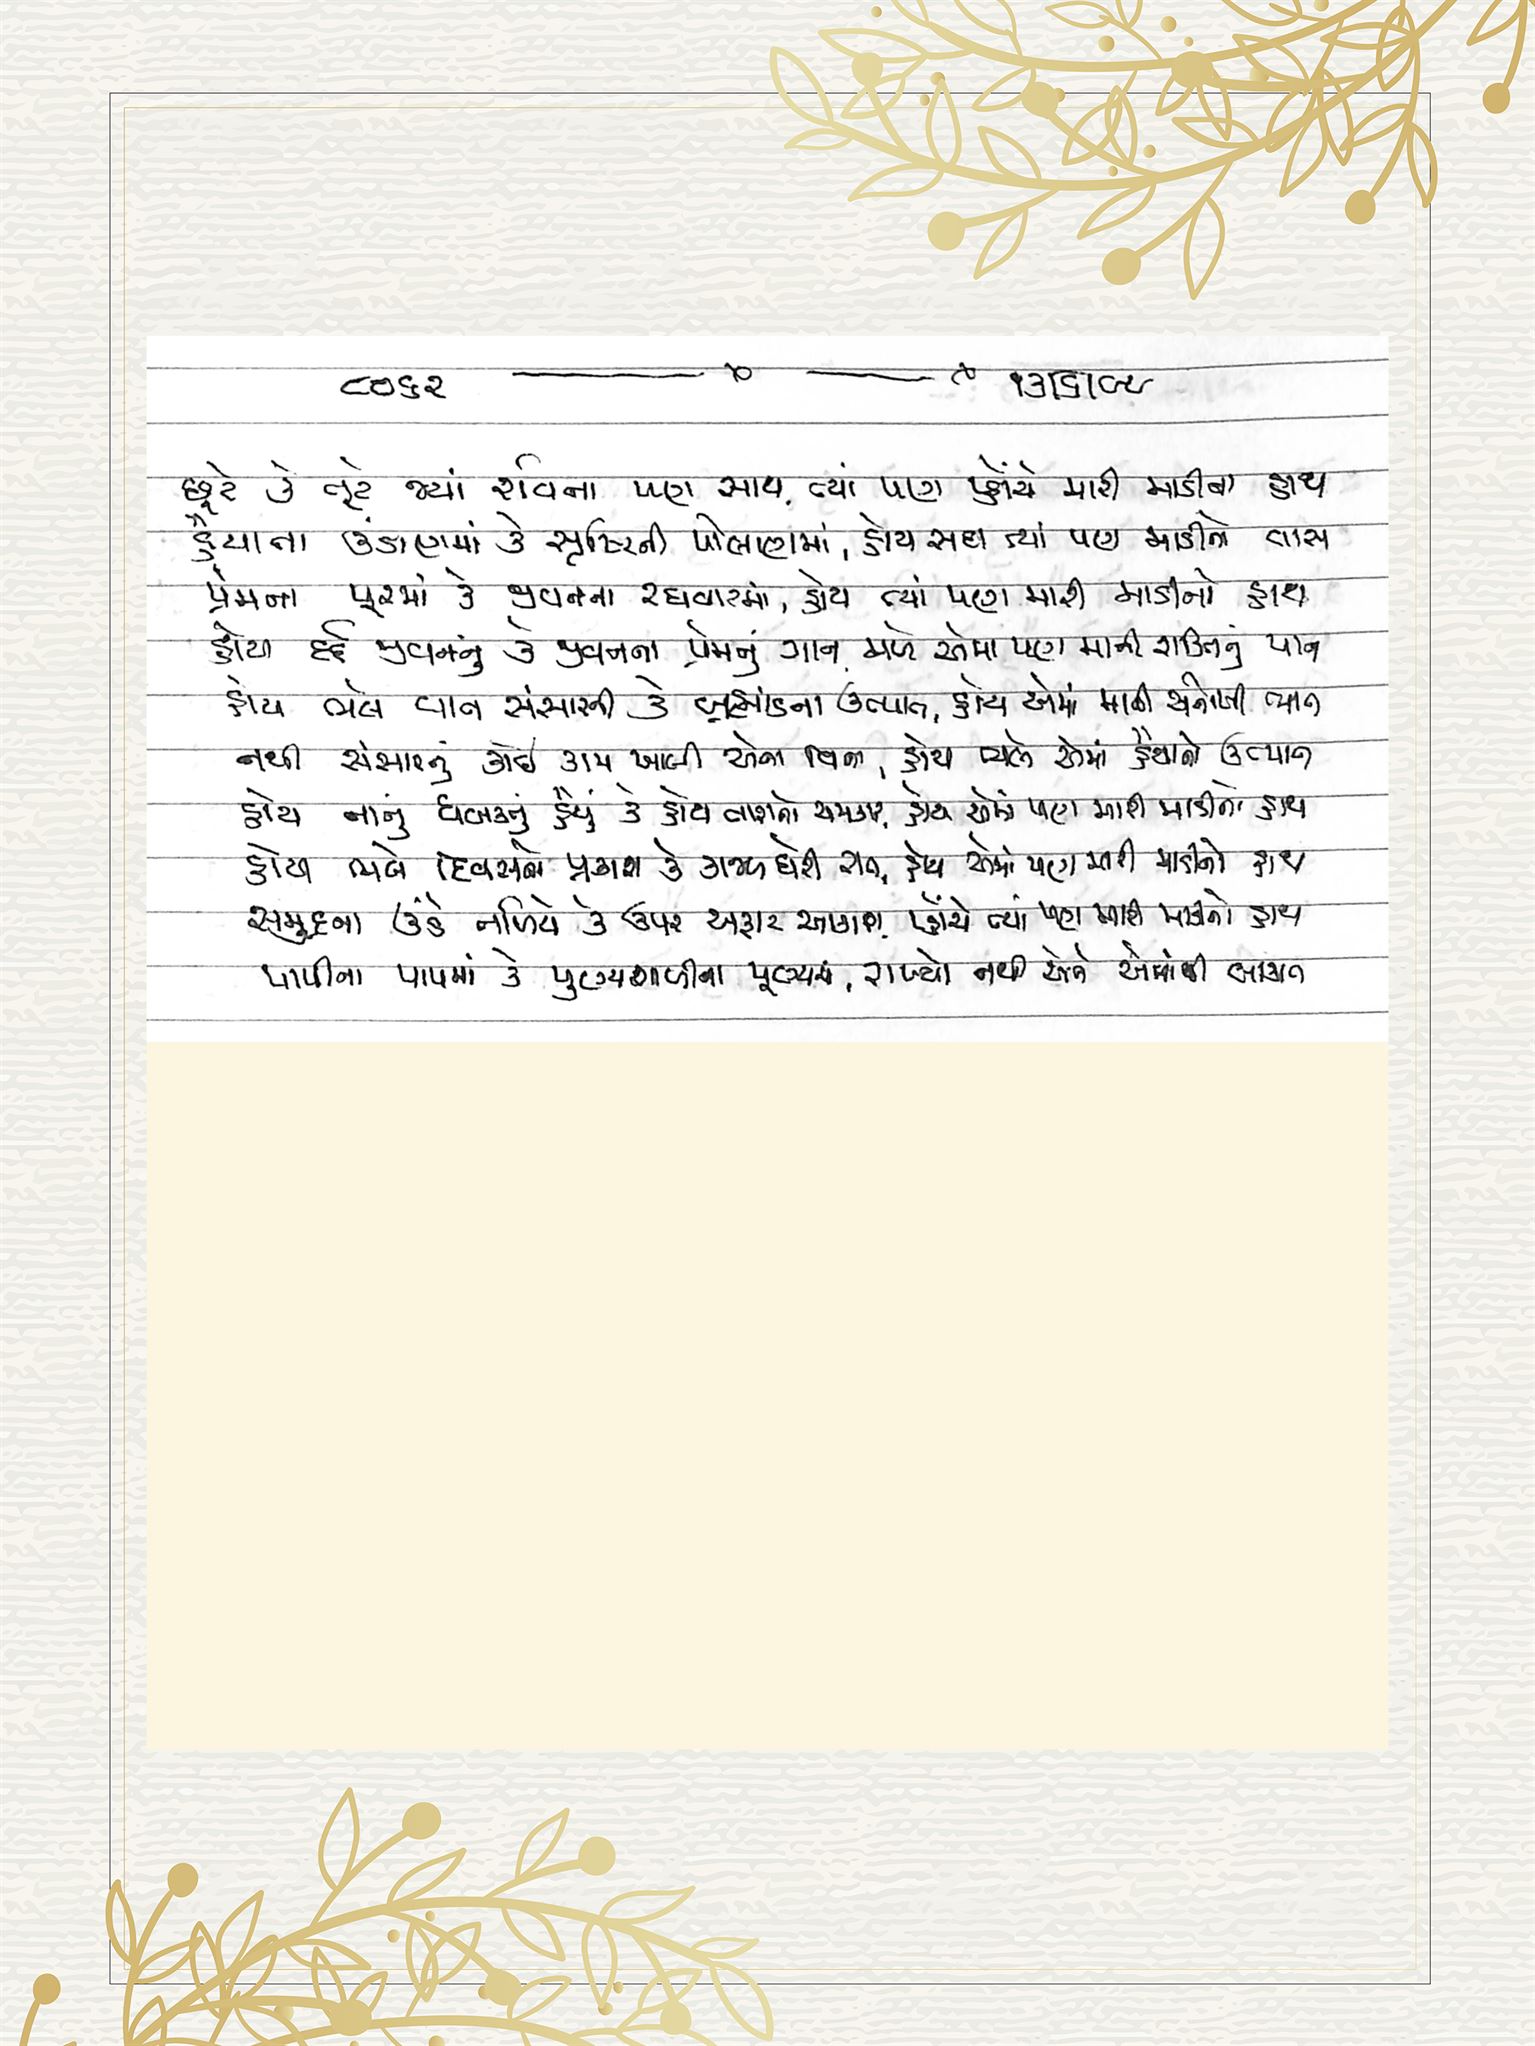 ૮૦૬૨ ૧૩/૬/૯૮
છૂટે કે તૂટે જ્યાં રવિના પણ સાથ, ત્યાં પણ પહોંચે મારી માડીના હાથ
હૈયાના ઉંડાણમાં કે સૃષ્ટિની પોલાણમાં, હોય સદા ત્યાં પણ માડીનો વાસ
પ્રેમના પૂરમાં કે જીવનના રઘવાટમાં, હોય ત્યાં પણ મારી માડીનો હાથ
હોય દર્દ જીવનનું કે જીવનના પ્રેમનું ગાન, મળે એમાં પણ માની શક્તિનું પાન
હોય ભલે સંસારની કે બ્રહ્માંડના ઉત્પાત, હોય એમાં માની અનોખી
નથી સંસારનું કોઈ કામ ખાલી એના વિના, હોય ભલે એમાં હૈયાનો ઉત્પાત
હોય નાનું ધબકતું હૈયું કે હોય તારાનો ચમકાર, હોય એમાં પણ મારી માડીનો હાથ
હોય ભલે દિવસનો પ્રકાશ કે કાજળ ઘેરી રાત, હોય એમાં પણ મારી માડીનો હાથ
સમુદ્રના ઉંડે તળિયે કે ઉપર અફાટ આકાશ, પહોંચે ત્યાં પણ મારી માડીનો હાથ
પાપીના પાપમાં કે પુણ્યશાળીના પૂણ્યમાં, રાખ્યો નથી એને એમાંથી બાકાત